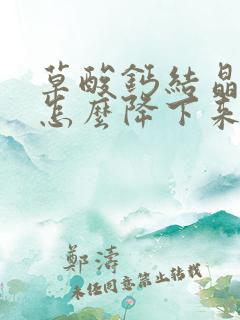 草酸鈣結晶
怎麼降下來
鄭濤
未經同意禁止轉載